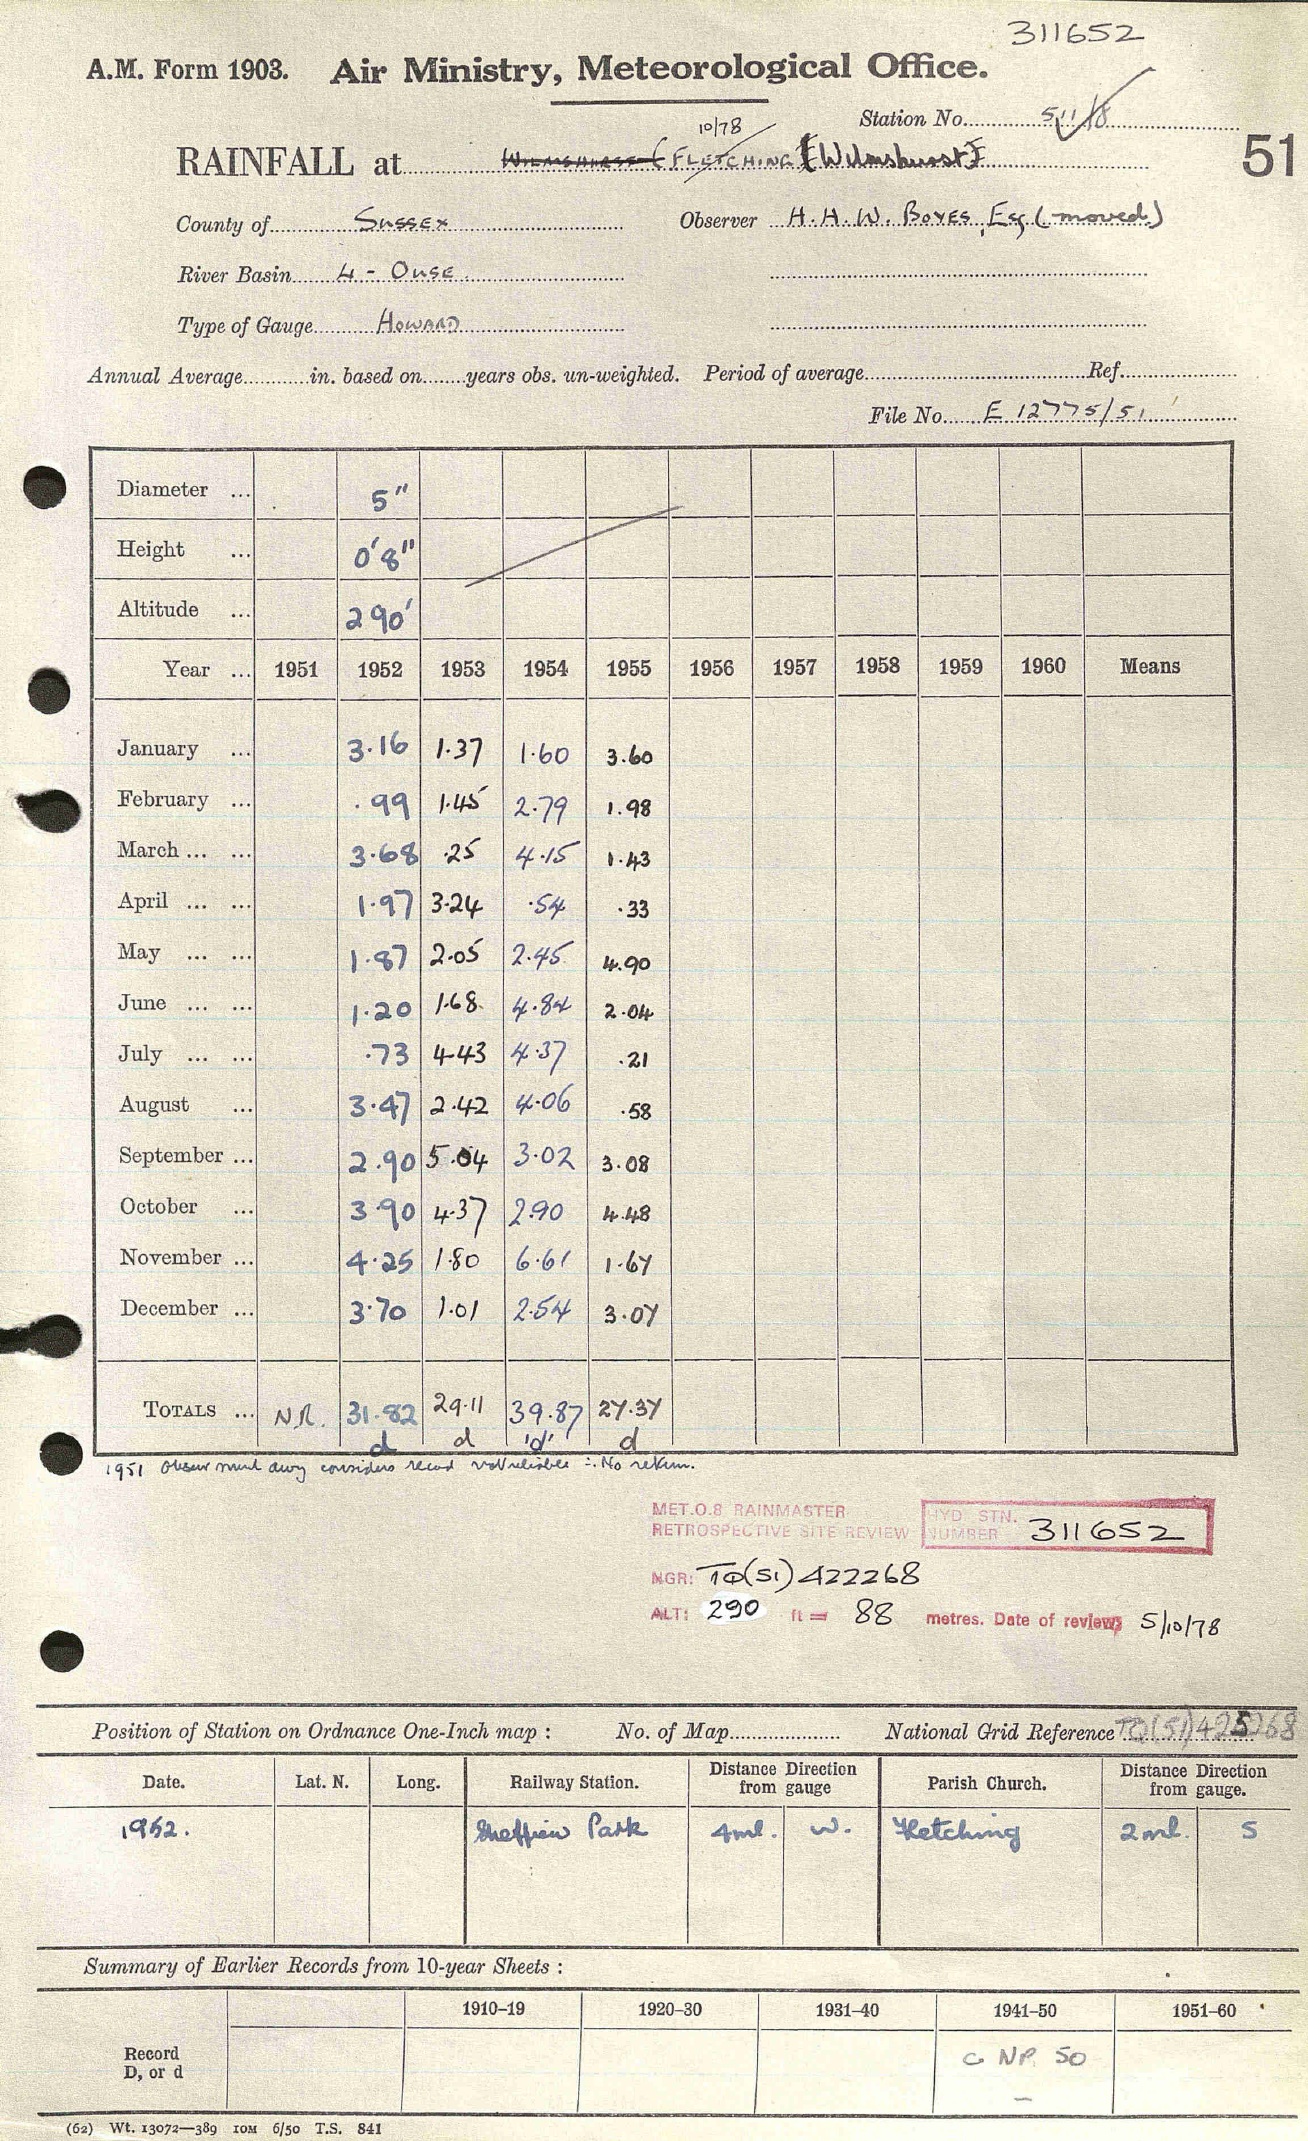 311652
A.M. Form 1903. Air Ministry, Meteorological Office.
Station No. 511/8
10/78
RAINFALL at Wilmshurst (Fletching) [Wilmshurst] 51
County of Sussex Observer H. H. W. Boyes, Esq (moved)
River Basin 4 - Ouse
Type of Gauge Howard
Annual Average in. based on years obs. un-weighted. Period of average Ref.
File No. E 12775/51
Diameter ... 5"
Height ... 0'8"
Altitude ... 290'
Year ... 1951 1952 1953 1954 1955 1956 1957 1958 1959 1960 Means
January ... 3.16 1.37 1.60 3.60
February ... .99 1.45 2.79 1.98
March ... ... 3.68 .25 4.15 1.43
April ... ... 1.97 3.24 .54 .33
May ... ... 1.87 2.05 2.45 4.90
June ... ... 1.20 1.68 4.84 2.04
July ... ... .73 4.43 4.37 .21
August ... 3.47 2.42 4.06 .58
September ... 2.90 5.04 3.02 3.08
October ... 3.90 4.37 2.90 4.48
November ... 4.25 1.80 6.61 1.67
December ... 3.70 1.01 2.54 3.07
Totals ... N.R. 31.82 29.11 39.87 27.37
d d 'd' d
1951 Observer much away considers record not reliable ∴ No return.
MET.O.8 RAINMASTER
RETROSPECTIVE SITE REVIEW HYD STN. NUMBER 311652
NGR: TQ(51)422268
ALT: 290 ft = 88 metres. Date of review: 5/10/78
Position of Station on Ordnance One-Inch map : No. of Map National Grid Reference TQ(51)425268
Date. Lat. N. Long. Railway Station. Distance Direction from gauge Parish Church. Distance Direction from gauge.
1952. Sheffield Park 4ml. W. Fletching 2ml. S
Summary of Earlier Records from 10-year Sheets :
1910–19 1920–30 1931–40 1941–50 1951–60
Record
D, or d
C NR 50
–
(62) Wt. 13072—389 10M 6/50 T.S. 841